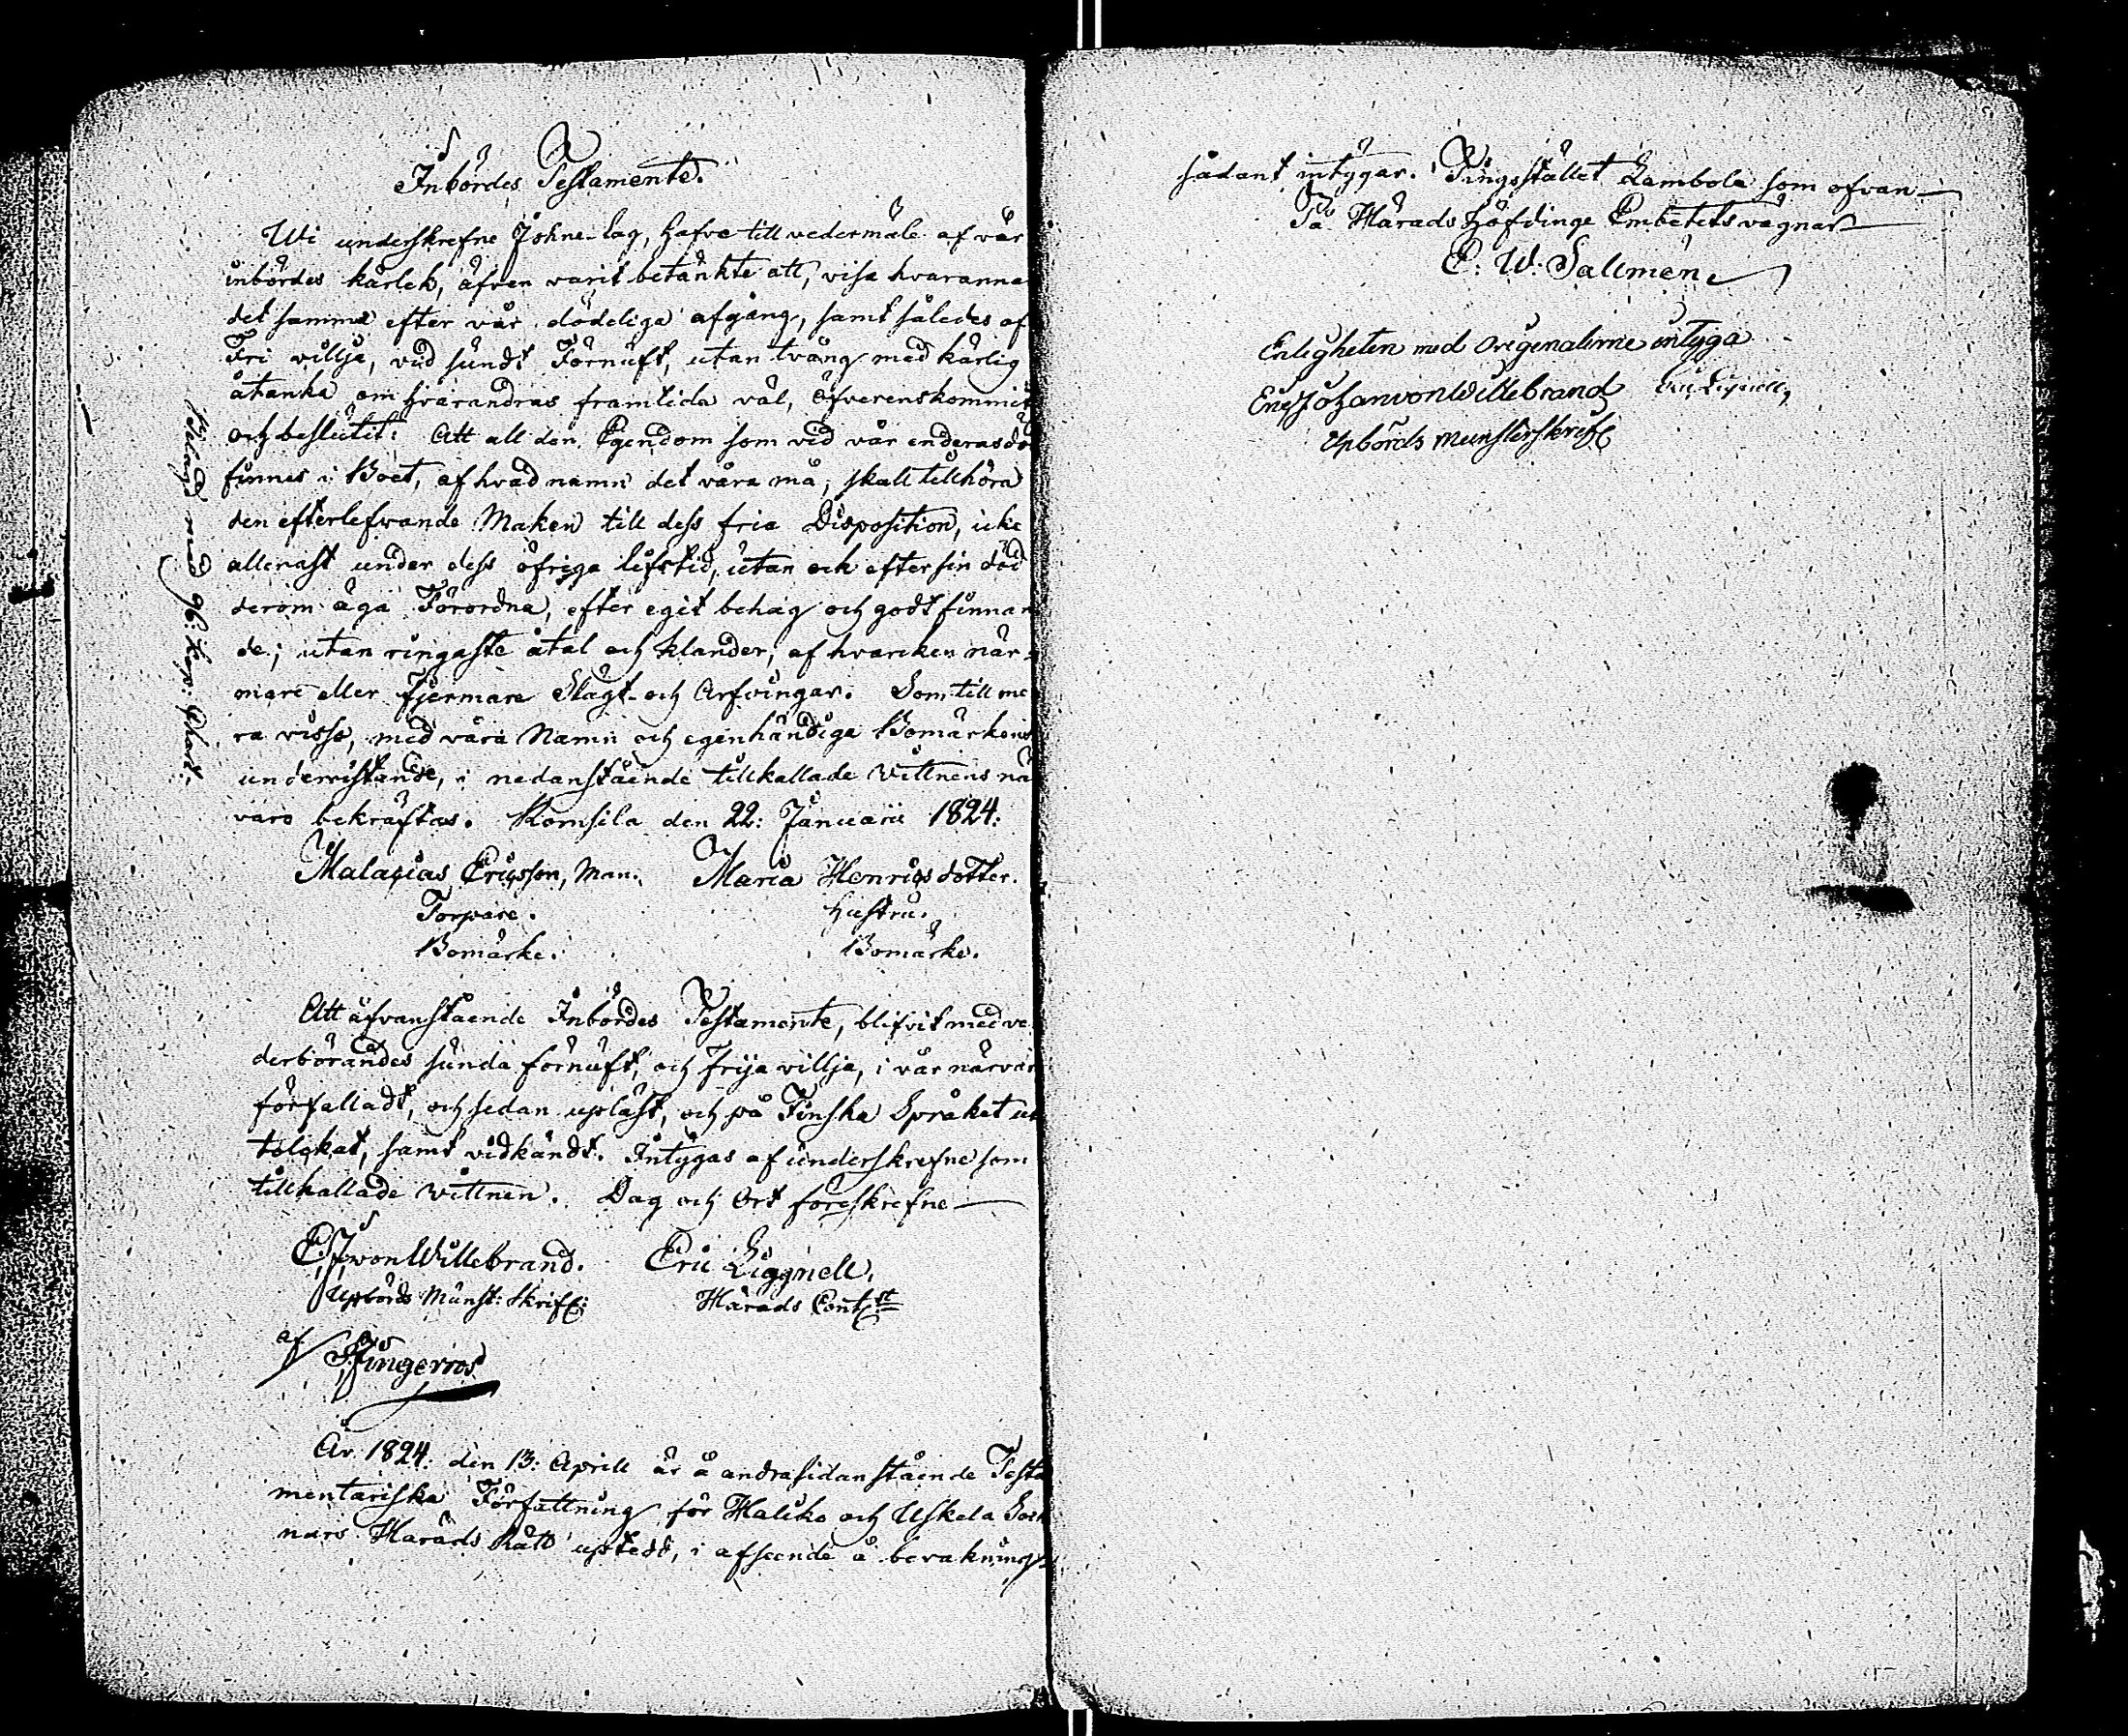 Inbördes Testamente.
Wi underskrefne Johne-lag, hafve till vedermäle af vår
inbördes kärlek, äfven varit betänkte att, visa hvaranna
det samma efter vår dödeliga afgång, samt således af
Fri villja, vid sundt Förnuft, utan tvång med kärlig
åtanka om hvarandras framtida väl, öfverenskommit
och beslutit: Att all den Egendom som vid vår enderas dö
finnes i Boet, af hvad namn det vara må, skall tillhöra
den efterlefwande Maken till dess fria Disposition, icke
allenast under dess öfriga lifstid, utan ock efter sin död
derom äga Förordna, efter egit behag och godtfinnan
de; utan ringaste åtal och klander, af hvarcken när-
mare eller fjermare Slägt- och Arfvingar. Som till me
ra visso, med våra Namn och egenhändige Bomärkens
underristande, i nedanstående tillkallade Wittnens nä
varo bekräftas. Komsila den 22: Januarii 1824:
Malacias Ericsson, Man. Maria Henricsdotter.
Torpare. Hustru.
Bomärke. Bomärke.
Belagd med 96: kop: Chart:
Att äfvanstående Inbördes Testamente, blifvit med ve
derbörandes sunda förnuft, och frija villja, i vår närvar
författadt, och sedan upläst, och på Finska Språket ut
tolckat, samt vidkändt. Intygas af underskrefne som
tillkallade wittnen. Dag och Ort föreskrefne
E. J. von Willebrand. Eric Liggnell.
Upbörds Munst: Skrif: Härads Cont:st
af
År 1824: den 13: Aprill är å andrasidan stående Testa
mentariska Författning för Haliko och Uskela Sock
nars Härads Rätt uptedd, i afseende å bevakning
sådant intygar. Tingsstället Lambola som ofvan
På Härads Höfdinge Embetets vägnar
E: W: Sallmén
Enligheten med Originalerne intyga
Eric Johan von Willebrand Eric Lignell,
Upbörds Munsterskrif: